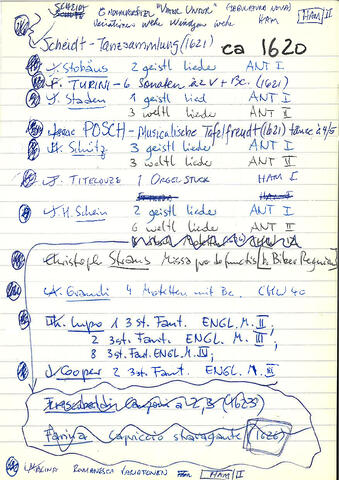 SCHEIDT 6 "VATER UNSER" (TABULATURA NOVA) HAM II
Variationen
Scheidt - Tanzsammlung (1621) ca 1620
J. Stobäus 2 geistl Lieder ANT I
F. TURINI - 6 Sonaten à 2 V + Bc. (1621)
J. Staden 1 geistl Lied ANT I
3 weltl Lieder ANT II
Isaac POSCH - Musicalische Tafelfreudt (1621) Tänze à 4/5
H. Schütz 3 geistl Lieder ANT I
3 weltl Lieder ANT II
J. TITELOUZE 1 ORGELSTÜCK HAM I
J. H. Schein 2 geistl Lieder ANT I
6 weltl Lieder ANT II
Christoph Straus Missa pro defunctis (b. Biber Requiem)
A. Grandi 4 Motetten mit Bc. CHW 40
Th. Lupo 1 3st. Fant. ENGL. M. II;
2 3st. Fant. ENGL. M. III;
8 3st. Fant. ENGL. M. IV;
J. Cooper 2 3st. Fant. ENGL. M. III
Frescobaldi Canzoni a 2,3 (1623)
Farina Capriccio stravagante (1626)
ROMANESCA VARIATIONEN HAM II